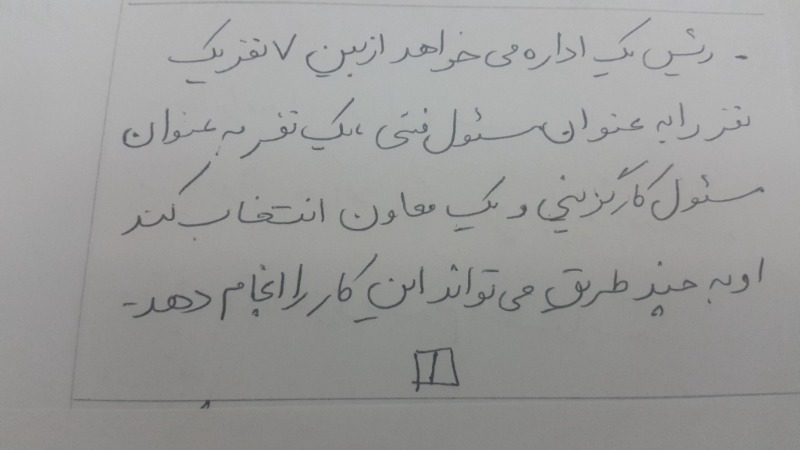 - رئیس یک اداره می خواهد از بین ۷ نفر یک
نفر را به عنوان مسئول فنی ، یک نفر به عنوان
مسئول کارگزینی و یک معاون انتخاب کند
او به چند طریق می تواند این کار را انجام دهد -
۱